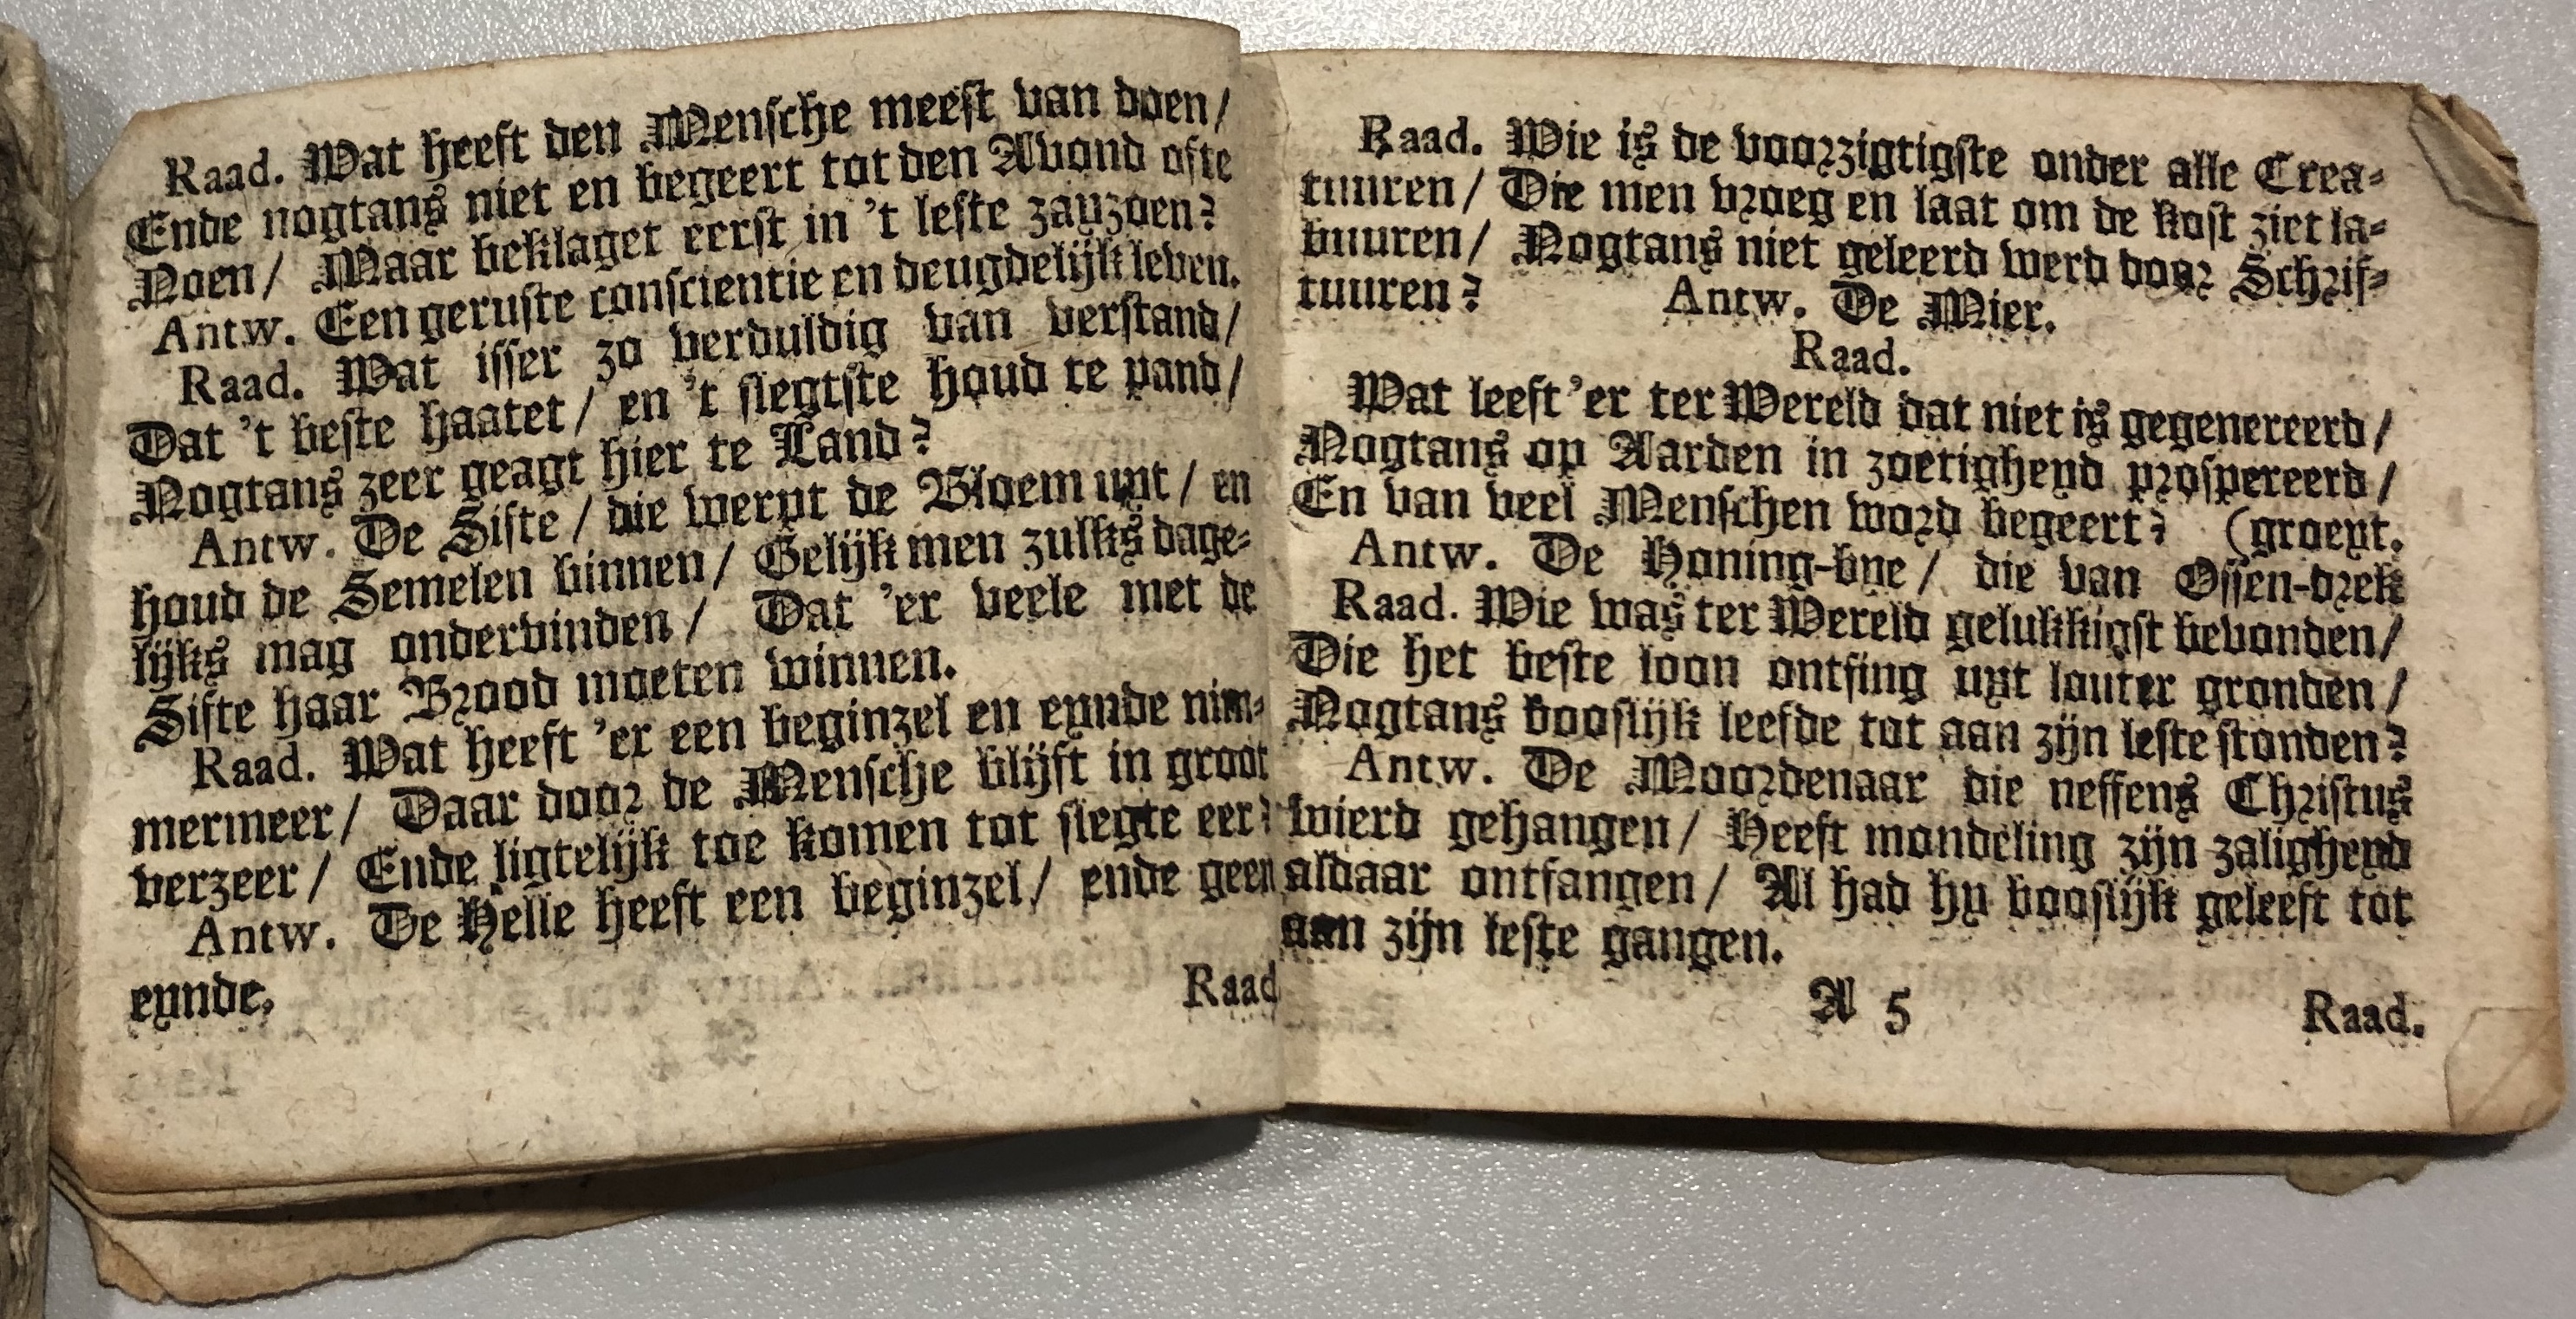 Raad. Wat heeft den Mensche meest van doen/
Ende nogtans niet en begeert tot den Avond ofte
Noen/ Maar beklaget eerst in 't leste zayzoen?
Antw. Een geruste conscientie en deugdelijk leven.
Raad. Wat isser zo verduldig van verstand/
Dat 't beste haatet/ en 't slegtste houd te pand/
Nogtans zeer geagt hier te Land?
Antw. De Sifte/ die werpt de Bloem uyt/ en
houd de Semelen binnen/ Gelijk men zulks dage-
lijks mag ondervinden/ Dat 'er veele met de
Sifte haar Brood moeten winnen.
Raad. Wat heeft 'er een beginzel en eynde nim-
mermeer/ Daar door de Mensche blijft in groot
verzeer/ Ende ligtelijk toe komen tot slegte eer?
Antw. De Helle heeft een beginzel/ ende geen
eynde.
Raad
Raad. Wie is de voorzigtigste onder alle Crea-
tuuren/ Die men vroeg en laat om de kost ziet la-
buuren/ Nogtans niet geleerd werd door Schrif-
tuuren? Antw. De Mier.
Raad.
Wat leeft 'er ter Wereld dat niet is gegenereerd/
Nogtans op Aarden in zoetigheyd prospereerd/
En van veel Menschen word begeert? (groeyt.
Antw. De Honing-bye/ die van Ossen-drek
Raad. Wie was ter Wereld gelukkigst bevonden/
Die het beste loon ontfing uyt louter gronden/
Nogtans booslijk leefde tot aan zijn leste stonden?
Antw. De Moordenaar die neffens Christus
wierd gehangen/ Heeft mondeling zijn zaligheyd
aldaar ontfangen/ Al had hy booslijk geleeft tot
aan zijn leste gangen.
A 5
Raad.